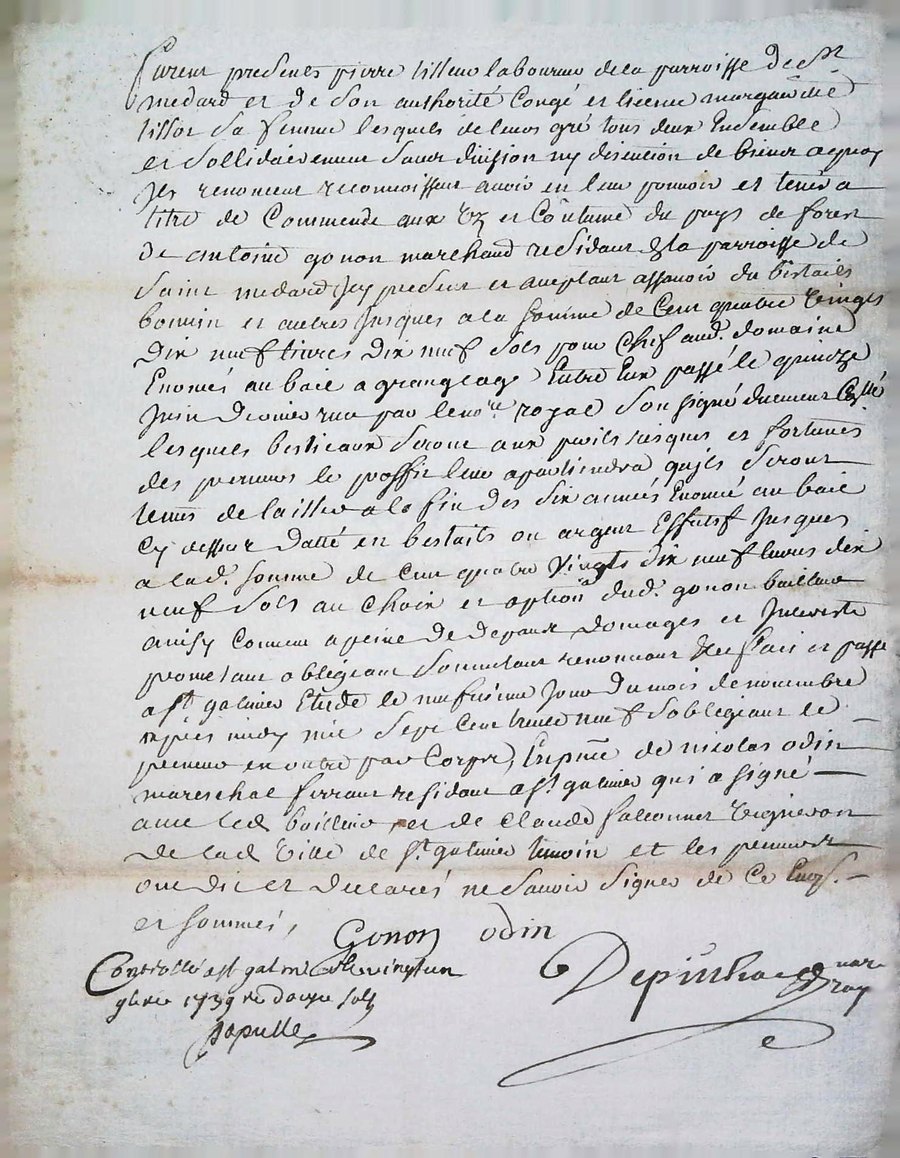 furent presents pierre tilleur laboureur de la parroisse de St
medard et de son authorité Congé et licence margueritte
tissot sa femme lesquels de leurs gré tous deux Ensemble
et sollidairement sans division ny discution de biens a quoy
Jls renoncent reconnoissent avoir en leur pouvoir et tenir a
titre de Commende aux Us et Coutume du pays de forest
de antoine gonon marchand residant en la parroisse de
Saint medard Jcy present et aceptant assavoir du bestails
bouvin et autres Jusques a la somme de Cent quatre Vingts
Dix neuf livres Dix neuf sols pour Chef aud. domaine
Enoncés au bail a grangeage Entre Eux passé le quinze
Juin Dernier receu par le nore. royal soussigné duement Collé
lesquels bestieaux seront aux perils risques et fortunes
des preneurs le proffit leur apartiendra qu'jls seront
tenus de laisser a la fin des six années Enoncé au bail
Cy dessus datté en bestails ou argent Effectif Jusques
a lad. somme de Cent quatre Vingts dix neuf livres dix
neuf sols au choix et option dud. gonon bailleur
ainsy Convenu a peine de depans domages et Jnterests
prometant obligeant soumetant renonceant &c fait et passé
a St galmier Etude le neufvieme Jour du mois de novembre
apres midy mil sept Cent trente neuf s'oblegeant le
preneur en outre par Corps, En pnce de nicolas odin
mareschal ferrant residant a St. galmier qui a signé
avec led bailleur et de Claude faleonnet Vigneron
de lad Ville de St. galmier temoin et les preneurs
ont dit et declarés ne savoir signer de ce Enqs.
et sommés,
Gonon odin
Controllé a St galmier le vingt un
9bre 1739 re douze sols
papulle
Depinhac nore
roy